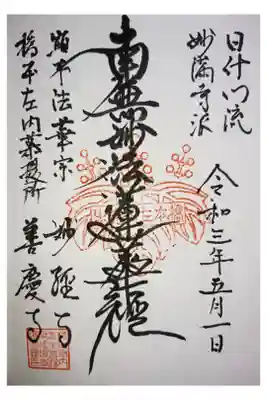 日什門流
妙満寺派
令和三年五月一日
南無妙法蓮華經
顕本法華宗 妙經寺
橋本左内菩提所 善慶寺